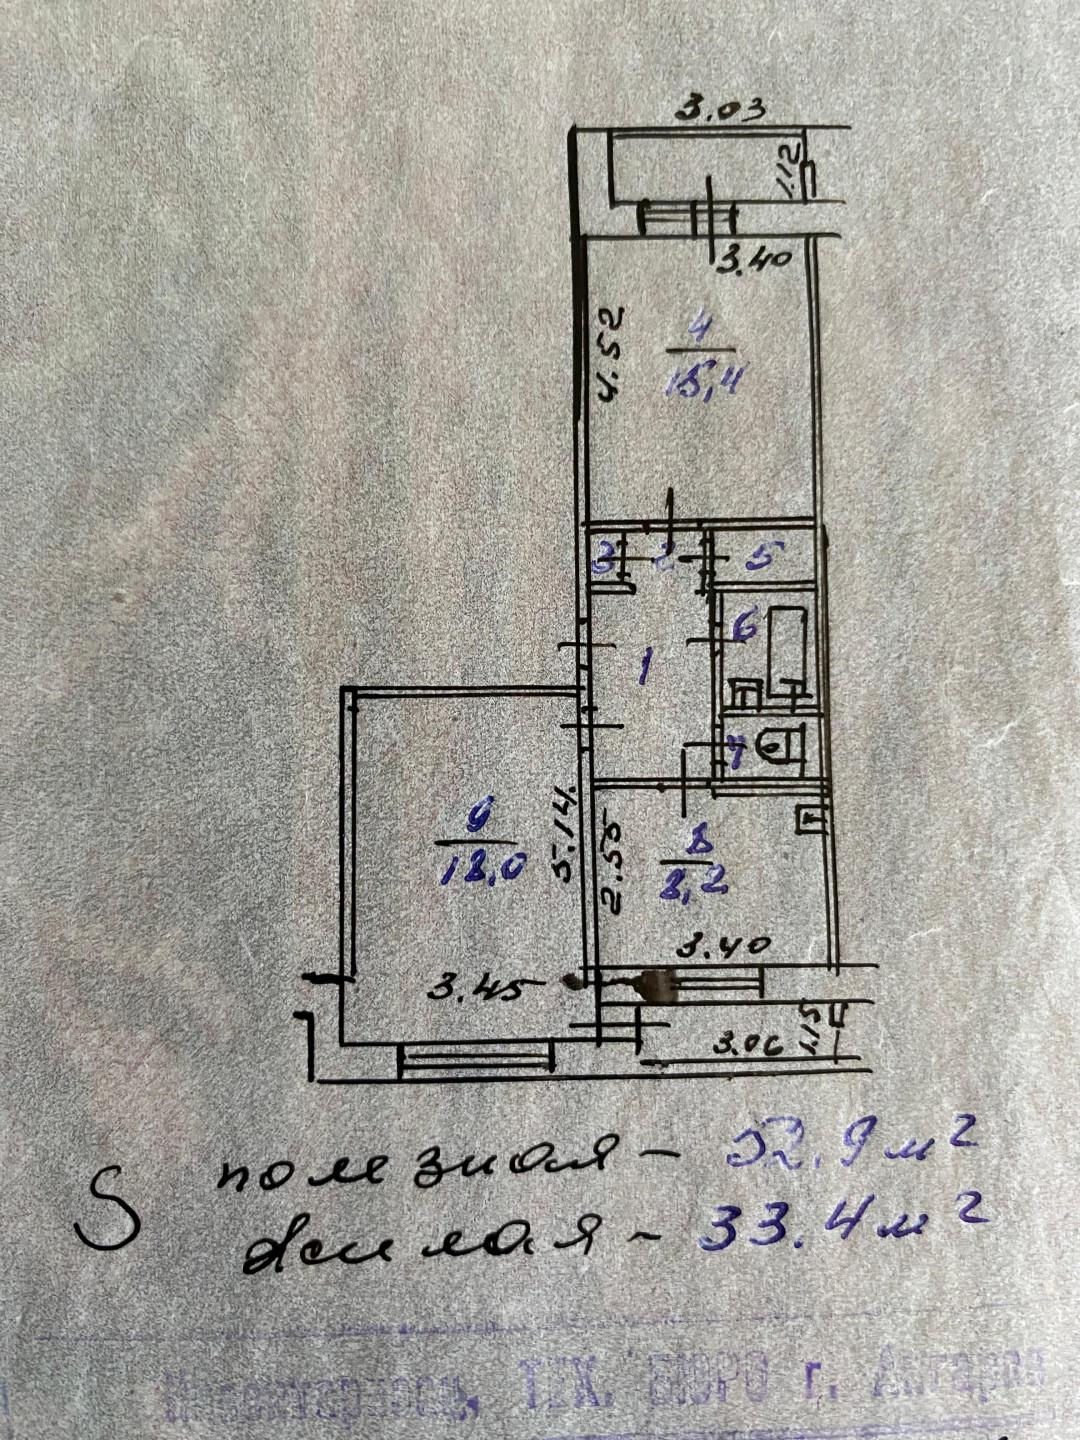 3.03
1.12
3.40
4.52
4
15,4
3
2
5
6
1
7
9
18,0
5.14.
2.55
8
8,2
3.40
3.45
3.06
1.15
S полезная - 52.9 м²
жилая - 33.4 м²